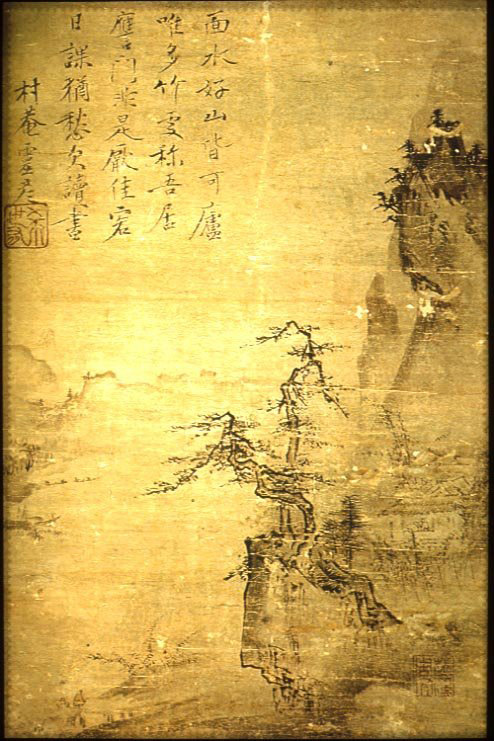 面水好山皆可廬
唯多竹吏称吾居
應門非是厭佳客
日課猶愁欠讀書
村菴霊彦